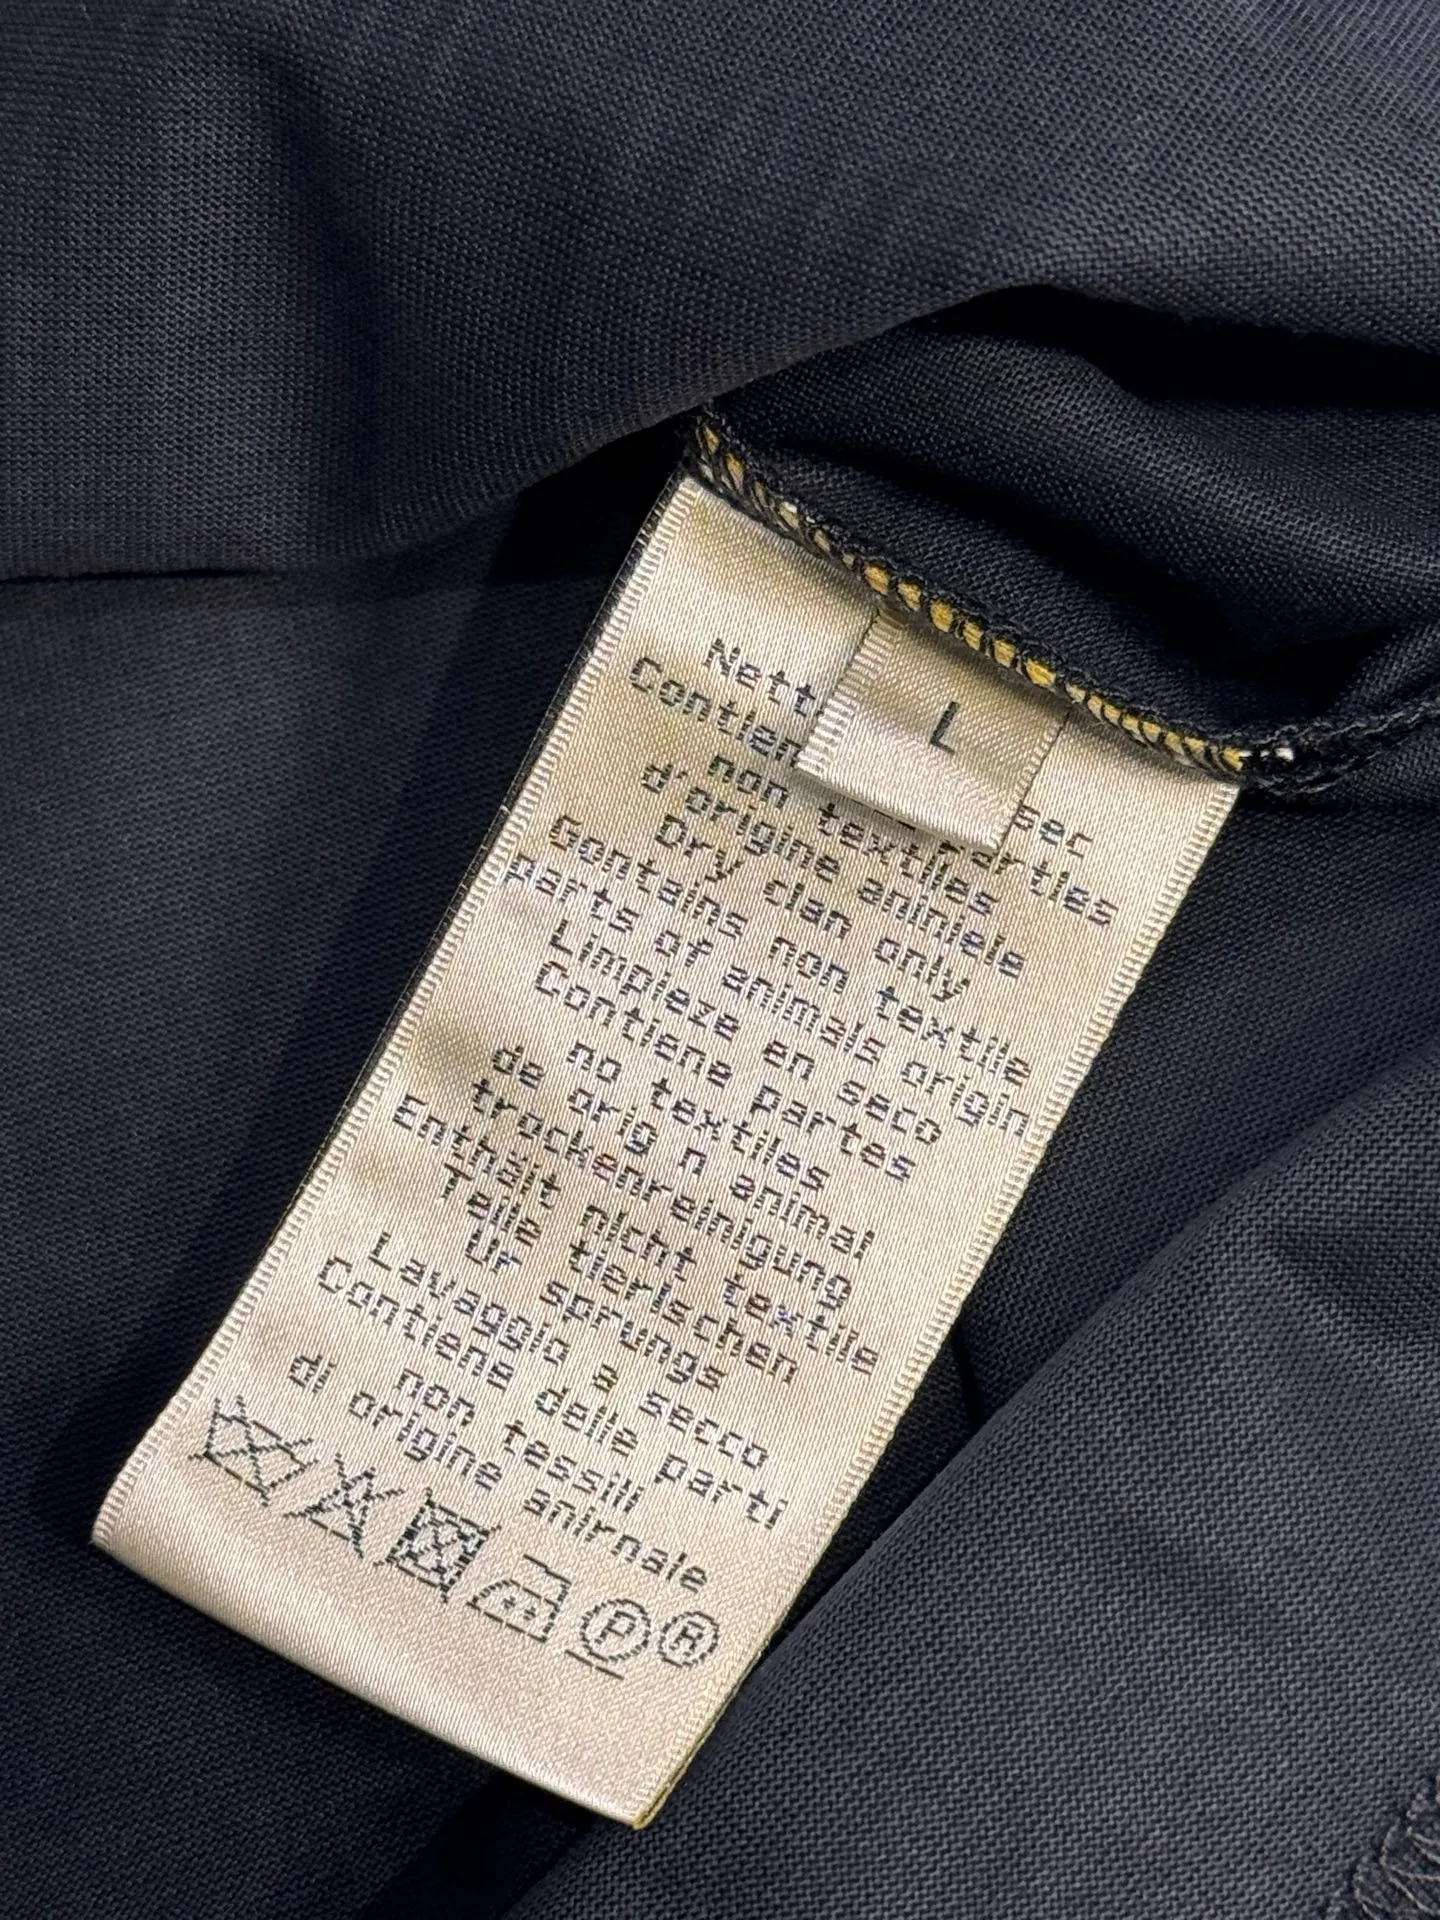 L
Nett
Contien
sec
parties
non textiles
d'origine aniniels
Dry clan only
Gontains non textile
parts of animals origin
Limpieze en seco
Contiene partes
no textiles
de orig n animal
trockenreinigung
Enthält nicht textile
Teile tierischen
Ur sprungs
Lavaggio a secco
Contiene delle parti
non tessili
di origine anirnale
P R